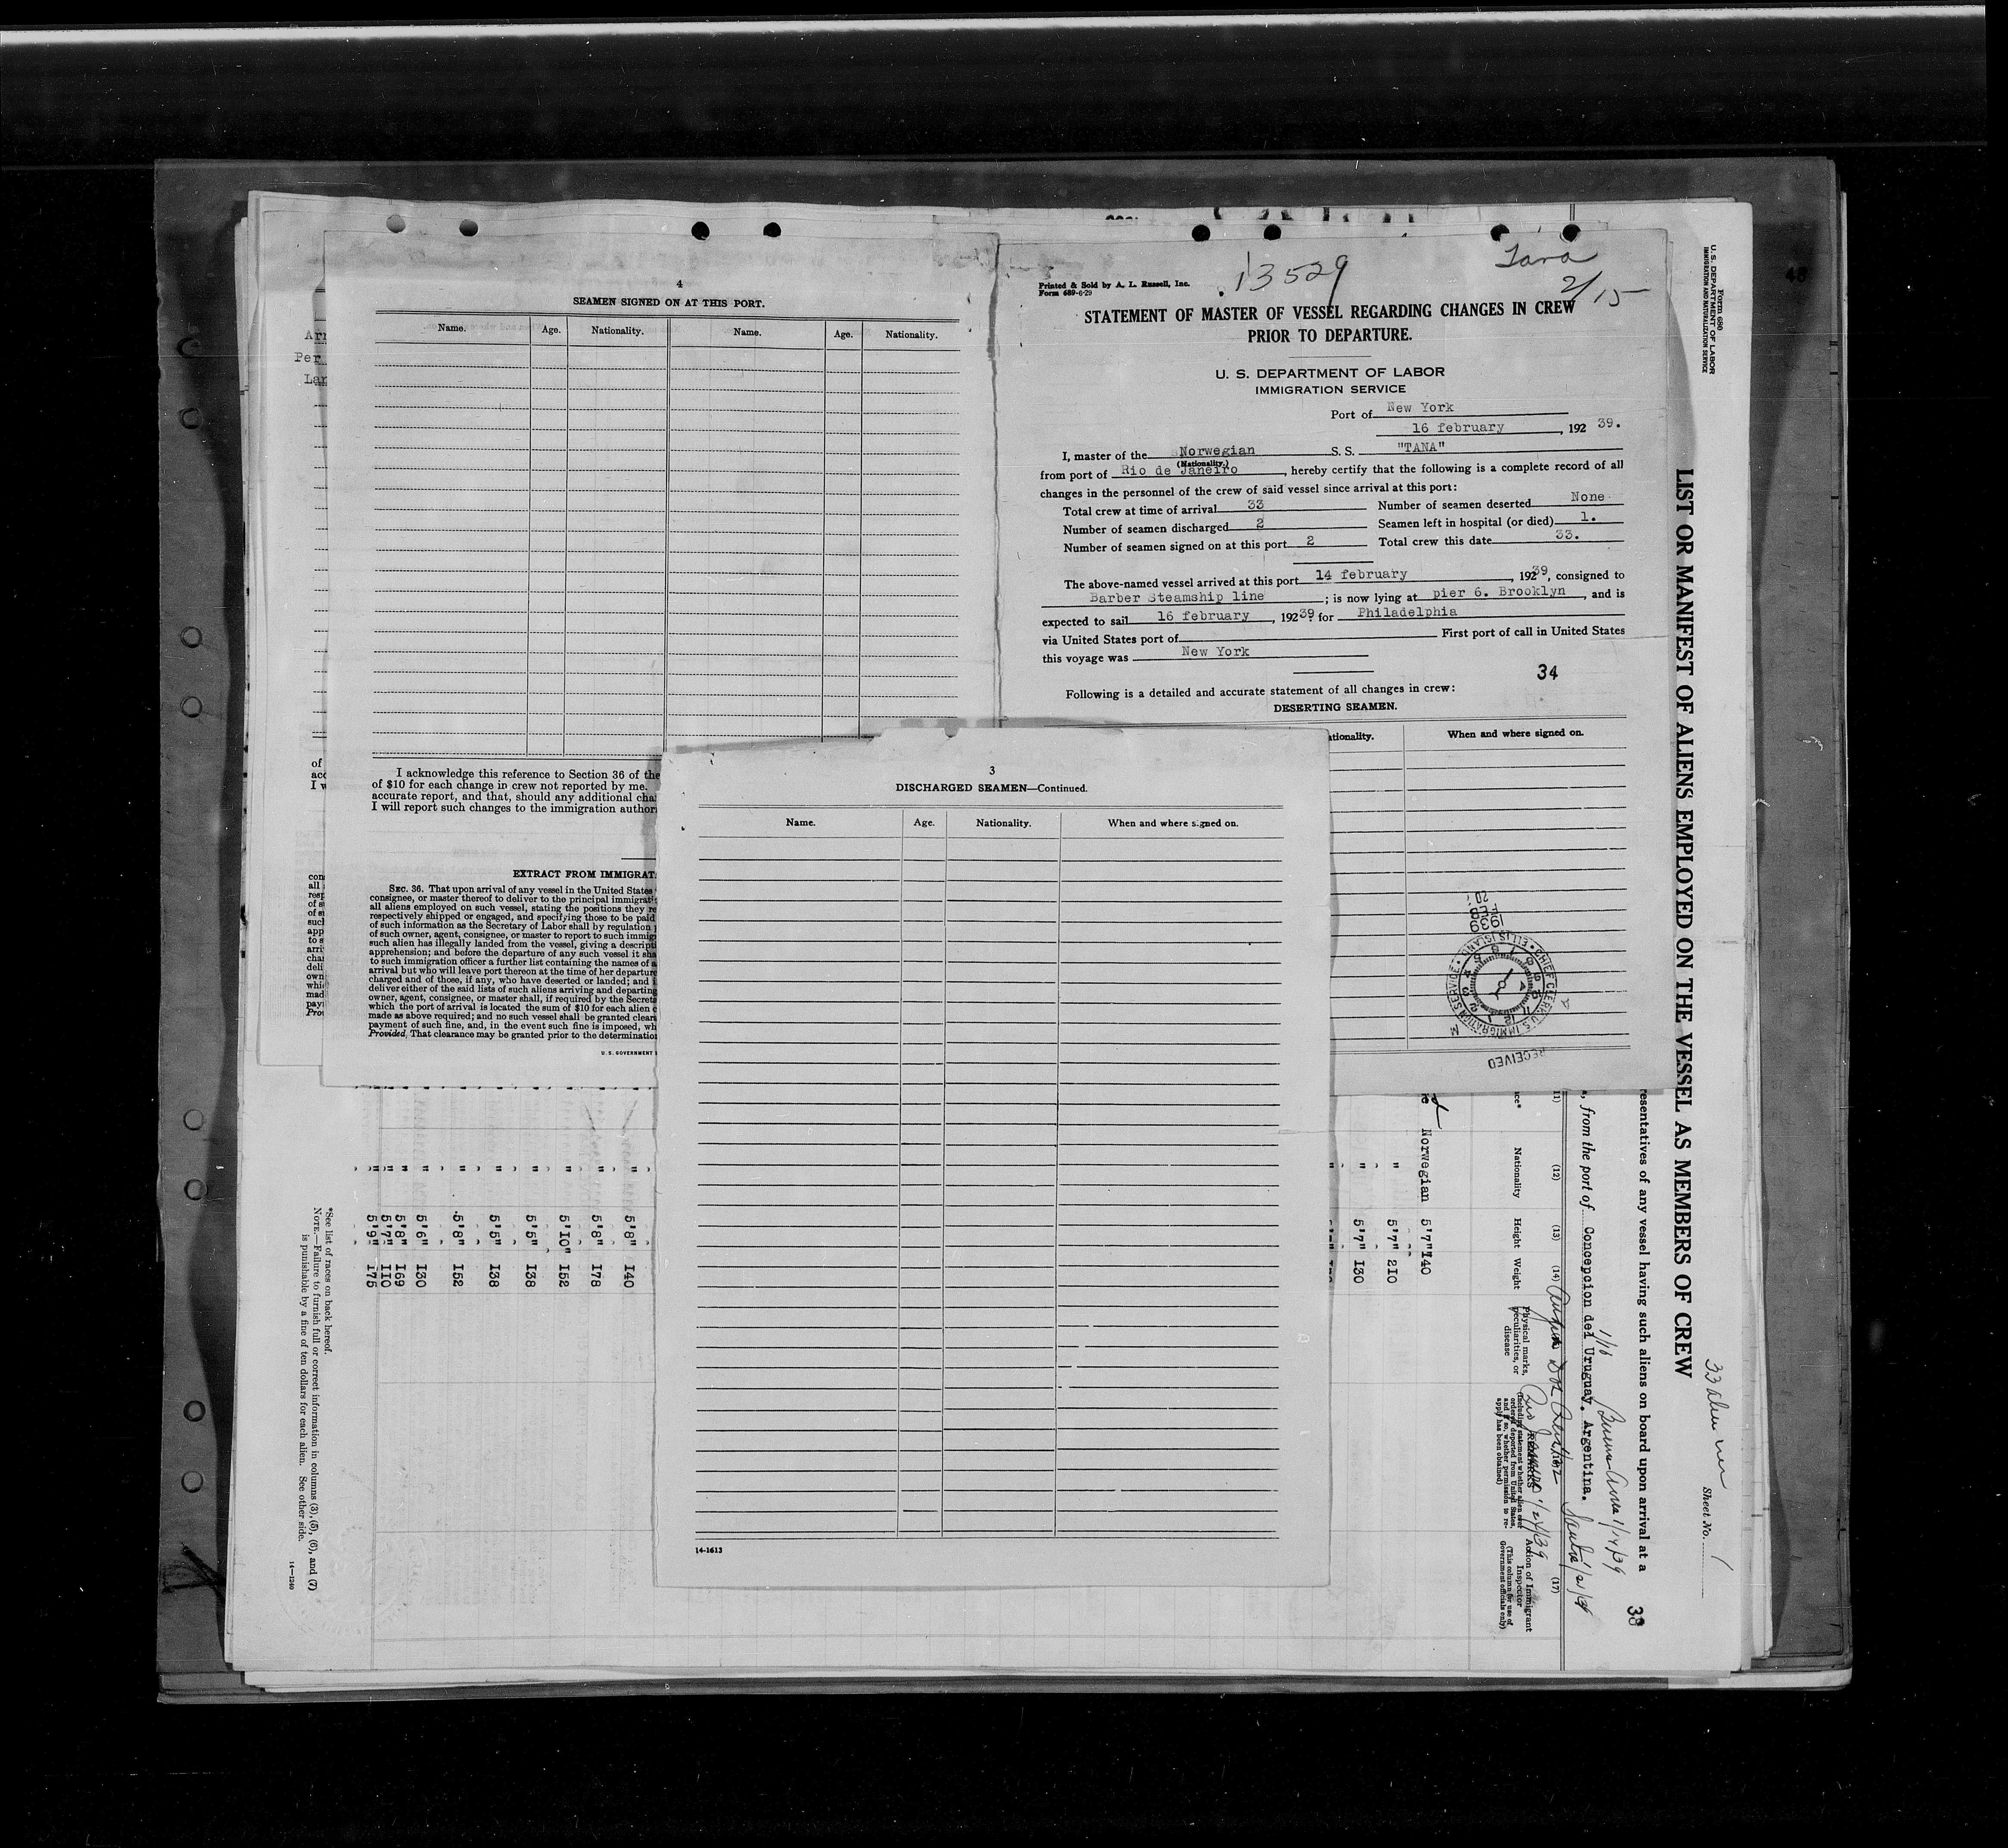 4
SEAMEN SIGNED ON AT THIS PORT.
Name. Age. Nationality. Name. Age. Nationality.
I acknowledge this reference to Section 36 of the
of $10 for each change in crew not reported by me.
accurate report, and that, should any additional cha
I will report such changes to the immigration author
EXTRACT FROM IMMIGRAT
SEC. 36. That upon arrival of any vessel in the United States
consignee, or master thereof to deliver to the principal immigrati
all aliens employed on such vessel, stating the positions they re
respectively shipped or engaged, and specifying those to be paid
of such information as the Secretary of Labor shall by regulation
of such owner, agent, consignee, or master to report to such immig
such alien has illegally landed from the vessel, giving a descripti
apprehension; and before the departure of any such vessel it sha
to such immigration officer a further list containing the names of a
arrival but who will leave port thereon at the time of her departure
charged and of those, if any, who have deserted or landed; and i
deliver either of the said lists of such aliens arriving and departing
owner, agent, consignee, or master shall, if required by the Secreta
which the port of arrival is located the sum of $10 for each alien c
made as above required; and no such vessel shall be granted clear
payment of such fine, and, in the event such fine is imposed, wh
Provided, That clearance may be granted prior to the determination
U. S. GOVERNMENT
Printed & Sold by A. L. Russell, Inc.
Form 689-6-29
13529
Tana
2/15
STATEMENT OF MASTER OF VESSEL REGARDING CHANGES IN CREW
PRIOR TO DEPARTURE.
U. S. DEPARTMENT OF LABOR
IMMIGRATION SERVICE
Port of New York
16 february, 192 39.
I, master of the Norwegian S. S. "TANA"
(Nationality.)
from port of Rio de Janeiro, hereby certify that the following is a complete record of all
changes in the personnel of the crew of said vessel since arrival at this port:
Total crew at time of arrival 33 Number of seamen deserted None
Number of seamen discharged 2 Seamen left in hospital (or died) 1.
Number of seamen signed on at this port 2 Total crew this date 33.
The above-named vessel arrived at this port 14 february, 192 39, consigned to
Barber Steamship line; is now lying at pier 6. Brooklyn, and is
expected to sail 16 february, 192 39 for Philadelphia
via United States port of First port of call in United States
this voyage was New York
34
Following is a detailed and accurate statement of all changes in crew:
DESERTING SEAMEN.
ationality. When and where signed on.
FEB 20
1939
CHIEF CLERK U.S. IMMIGRATION SERVICE ELLIS ISLAND
RECEIVED
3
DISCHARGED SEAMEN—Continued.
Name. Age. Nationality. When and where signed on.
14-1613
Form 680
U. S. DEPARTMENT OF LABOR
IMMIGRATION AND NATURALIZATION SERVICE
LIST OR MANIFEST OF ALIENS EMPLOYED ON THE VESSEL AS MEMBERS OF CREW
Sheet No.
resentatives of any vessel having such aliens on board upon arrival at a
38
, from the port of Concepcion del Uruguay. Argentina.
1/16
Rio Janeiro 1/24/39
(11) (12) (13) (14) (17)
Nationality Height Weight
Physical marks, peculiarities, or disease
REMARKS
(Including statement whether alien ever ordered deported from United States, and if so, whether permission to reapply has been obtained)
Action of Immigrant Inspector
(This column for use of Government officials only)
Norwegian 5'7" 140
" 5'7" 210
" 5'7" 130
" 5'8" 140
" 5'8" 178
" 5'10" 152
" 5'5" 138
" 5'5" 138
" 5'8" 152
" 5'6" 130
" 5'8" 169
" 5'7" 110
" 5'9" 175
*See list of races on back hereof.
NOTE.—Failure to furnish full or correct information in columns (3), (5), (6), and (7)
is punishable by a fine of ten dollars for each alien. See other side.
14—1240